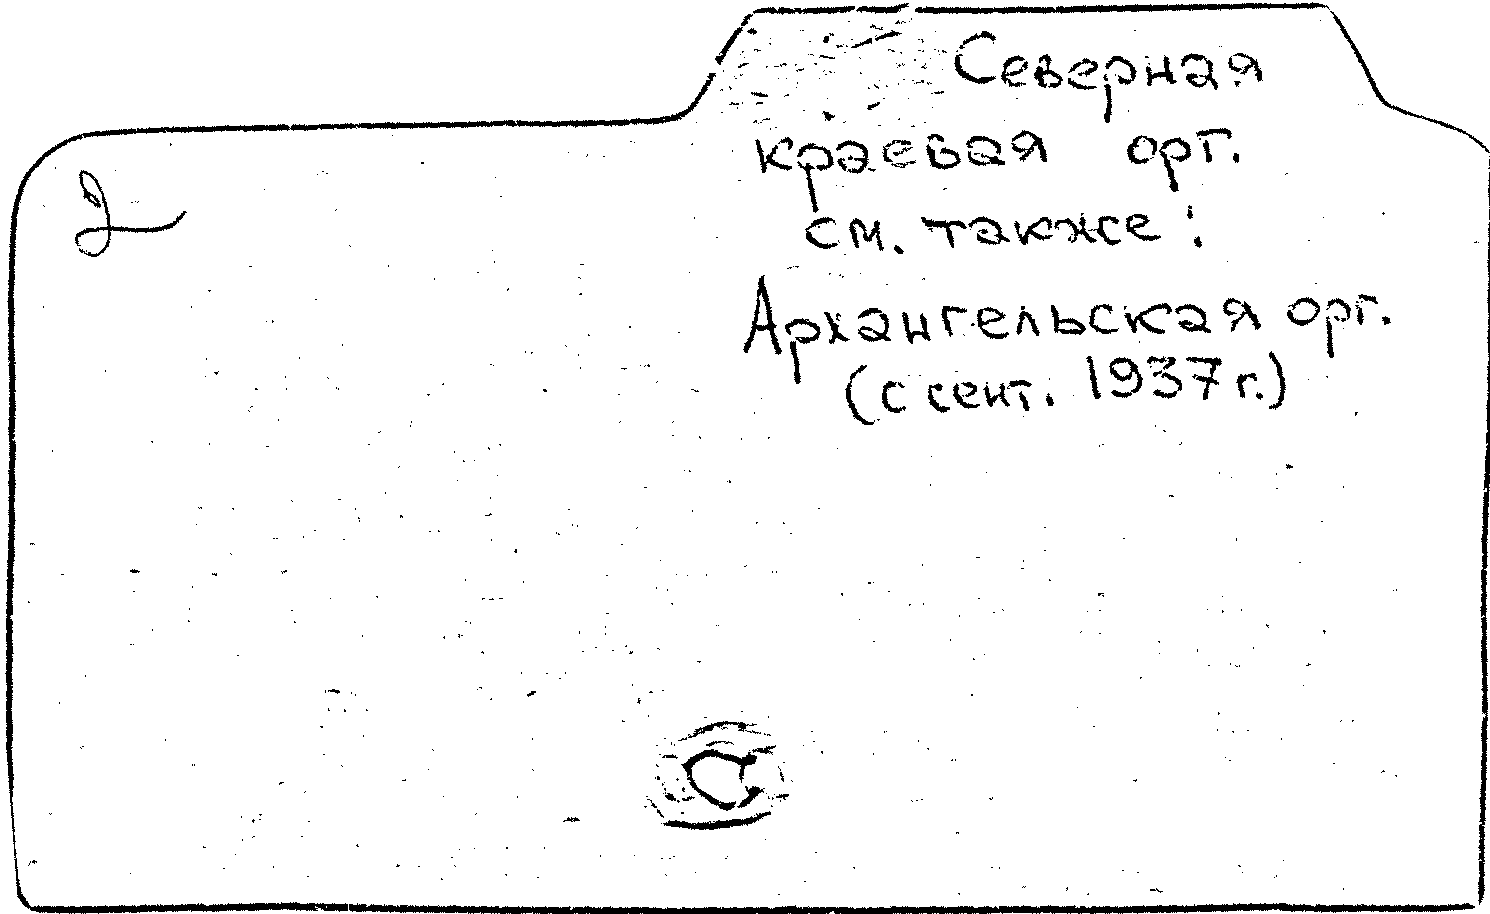 Северная
краевая орг.
см. также:
Архангельская орг.
(с сент. 1937 г.)